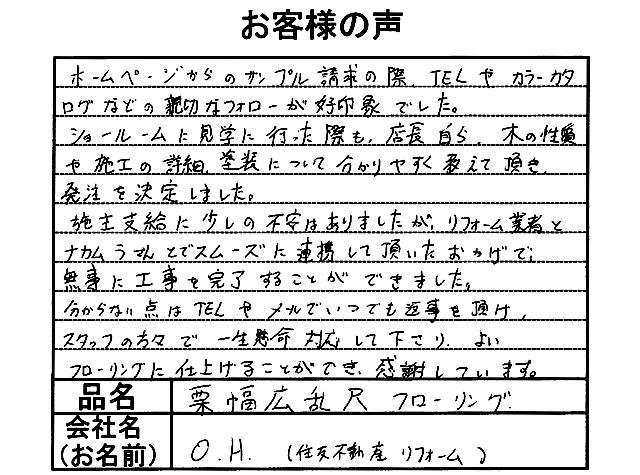 お客様の声
ホームページからのサンプル請求の際、TELやカラーカタ
ログなどの親切なフォローが好印象でした。
ショールームに見学に行った際も、店長自ら、木の性質
や施工の詳細、塗装について分かりやすく教えて頂き、
発注を決定しました。
施主支給に少しの不安はありましたが、リフォーム業者と
ナカムラさんとでスムーズに連携して頂いたおかげで、
無事に工事を完了することができました。
分からない点はTELやメールでいつでも返事を頂け、
スタッフの方々で一生懸命対応して下さり、よい
フローリングに仕上げることができ、感謝しています。
品名 栗幅広乱尺フローリング
会社名
(お名前) O.H. (住友不動産リフォーム)